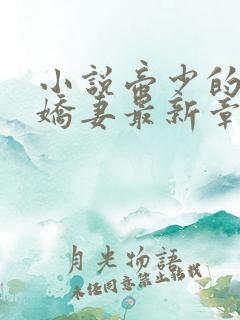 小説帝少的
嬌妻最新章
月光物語
未经同意禁止轉載